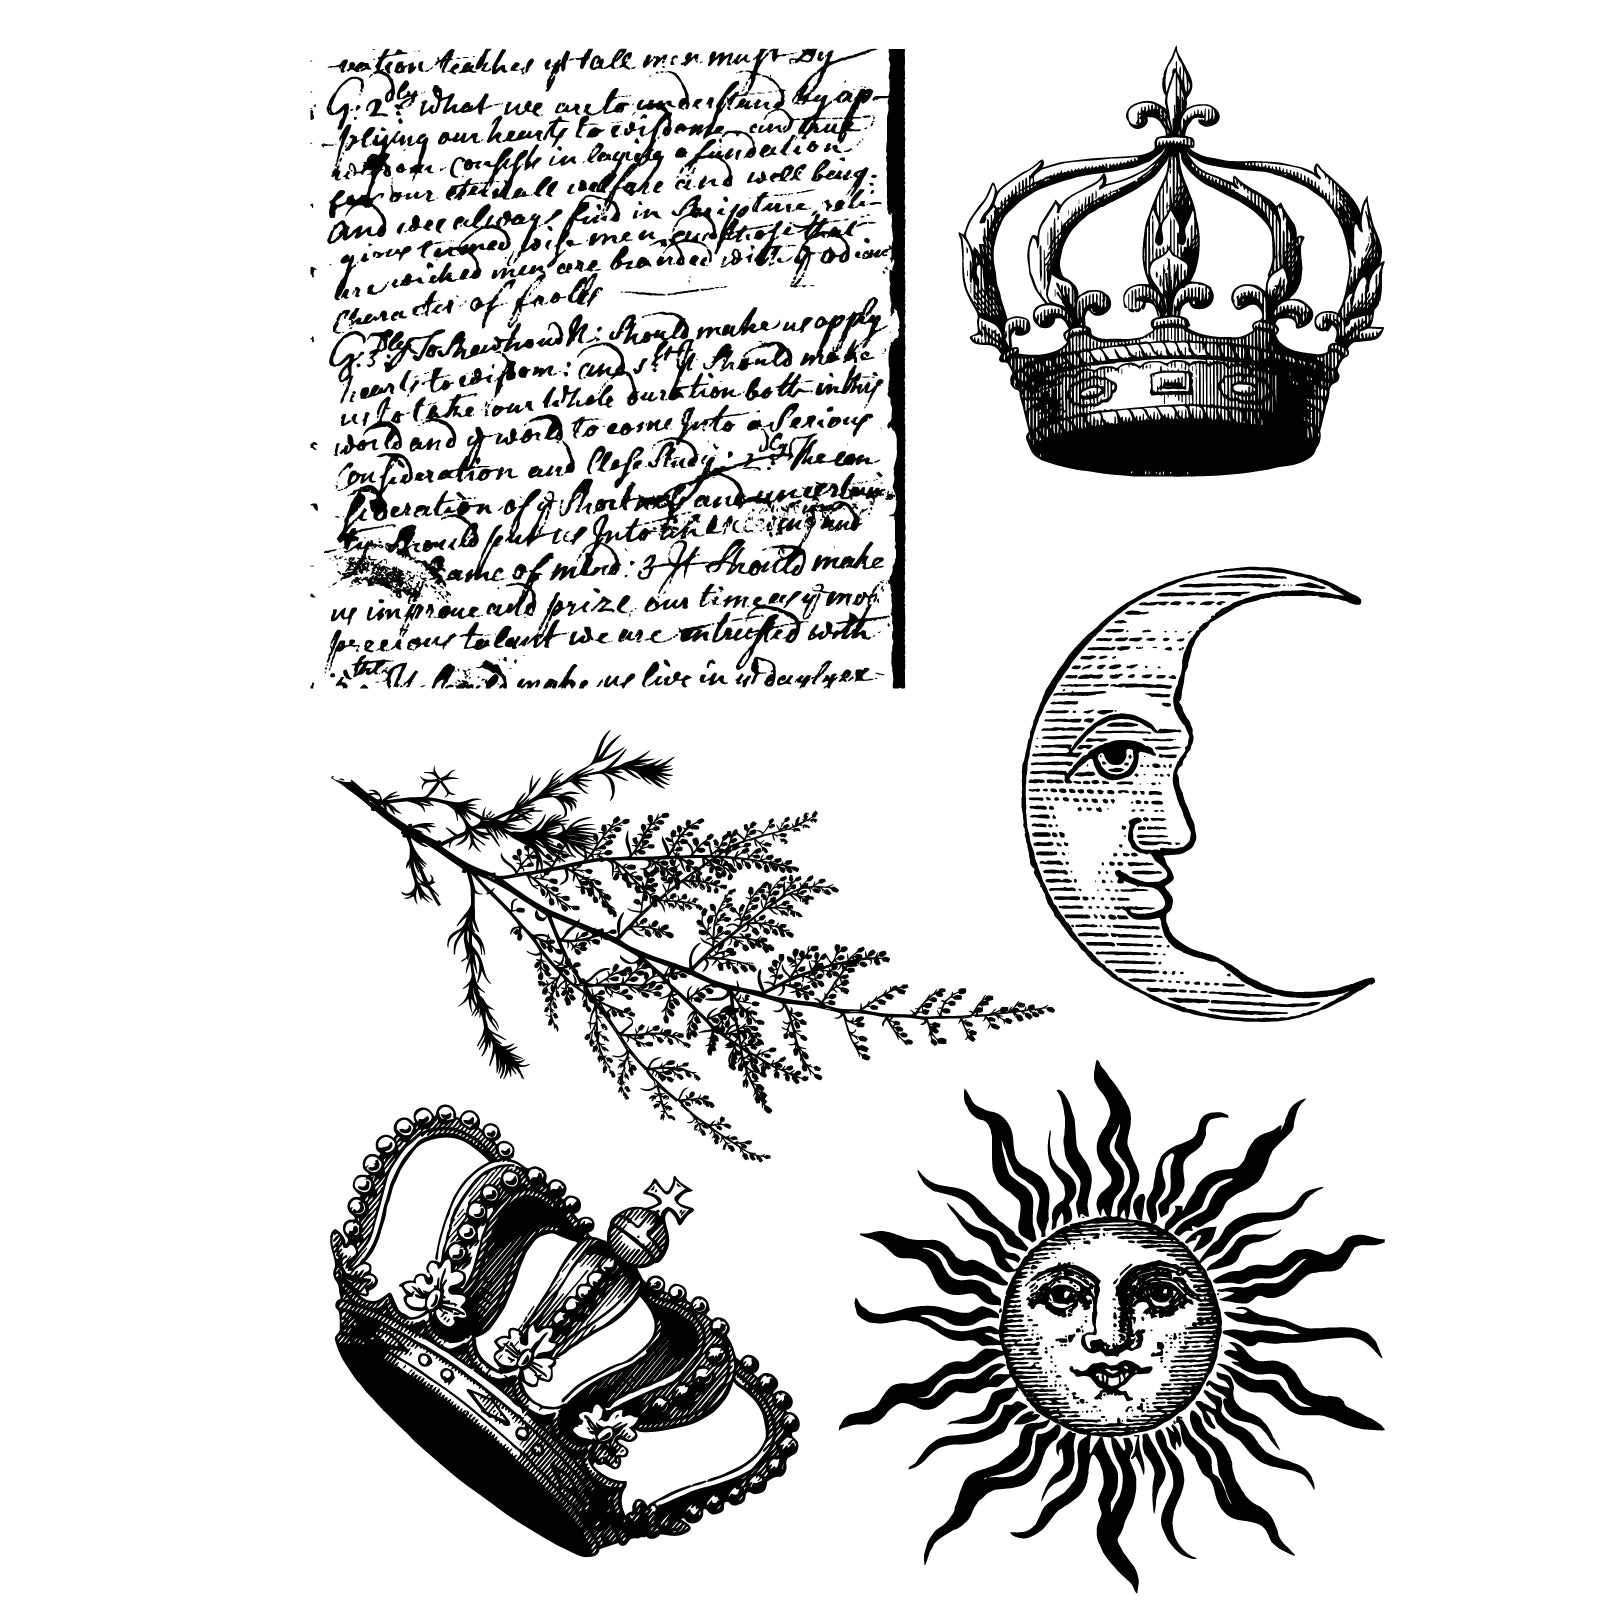 teaches yt all men must Dy
G: 2dly: what we are to understand by ap-
plijing our hearts to wisdome and true
wisdom consists in laying a fundation
for our eternall welfare and well being.
And wee always find in Scripture reli-
gious turned wise men and those that
are wicked men are branded with ye odious
Character of fooles
G: 3dly To Shew how N: Should make us apply
hearts to wisdom: and 1st It Should make
us to take our Whole duration both in this
world and ye world to come Into a Serious
Consideration and Close Study: 2dly The con
sideration of ye Shortness and uncertain
ty Should put us Into
frame of mind: 3 It Should make
us improve and prize our time as ye most
precious talant we are intrusted with
Should make us live in dayly ex-